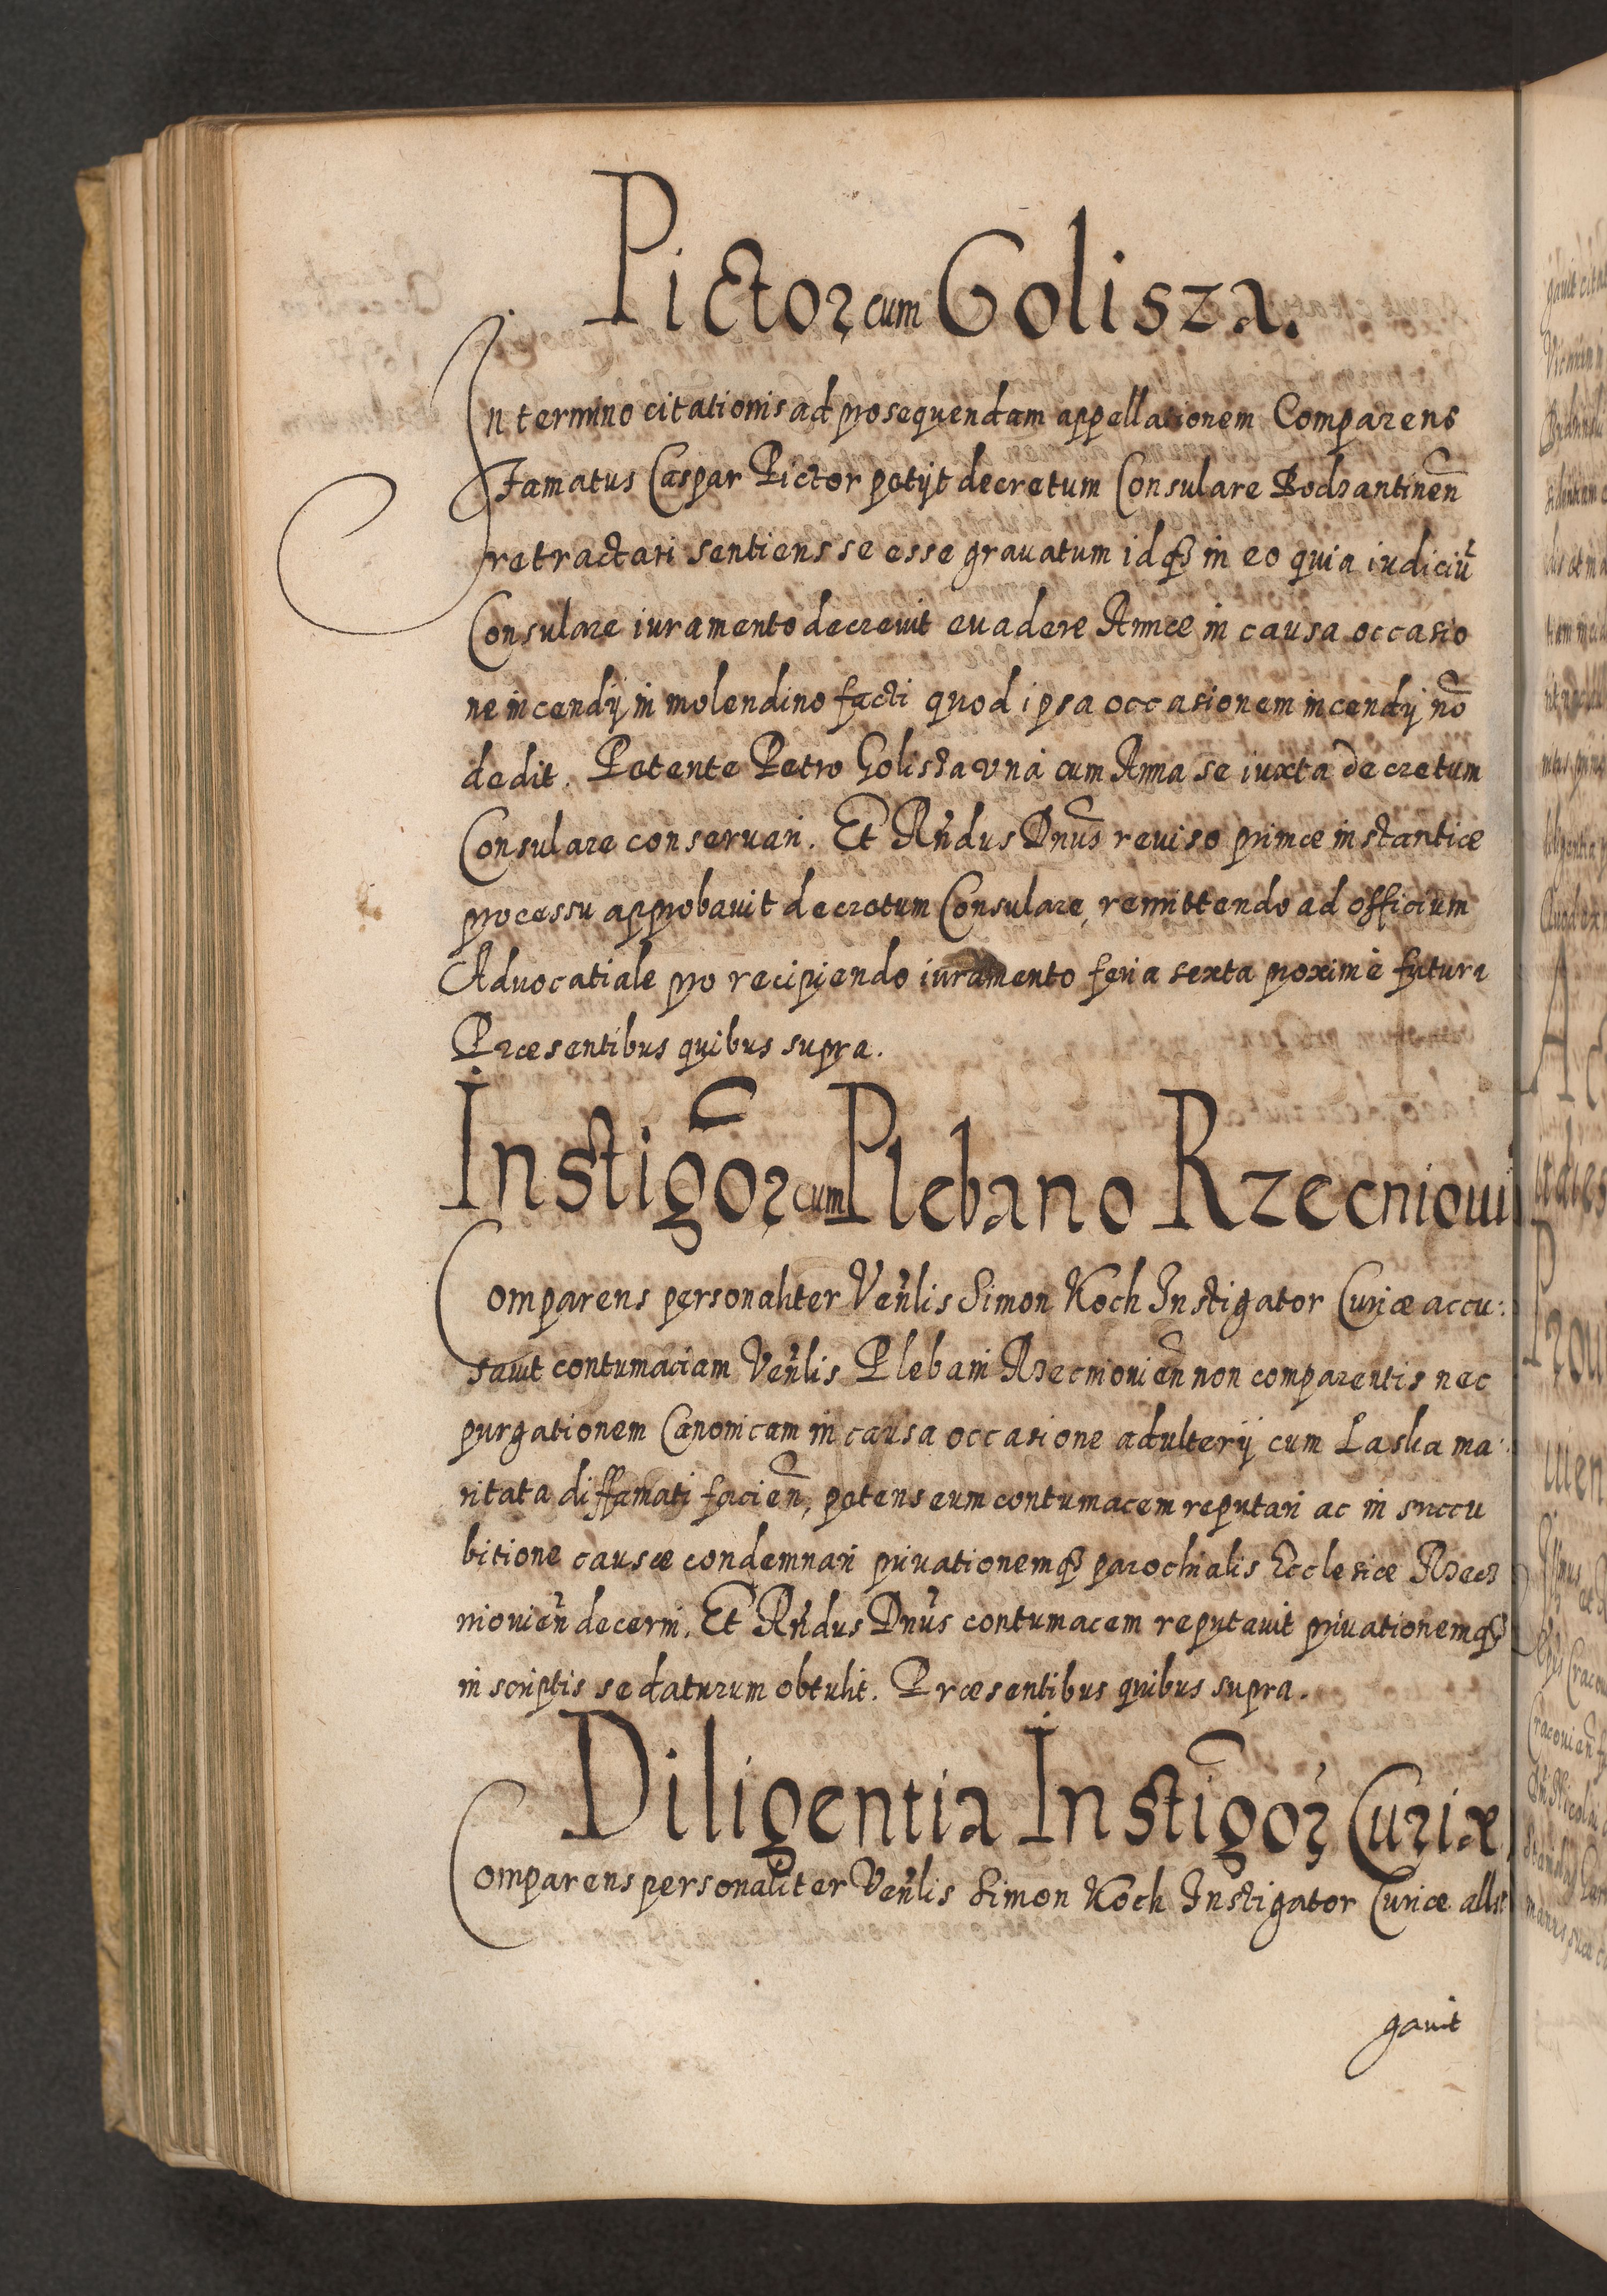 Pictor cum Golisza.
In termino citationis ad prosequendam appellationem Comparens
Famatus Caspar Pictor petijt decretum Consulare Bodzantinen̄
retractari sentiens se esse grauatum idq3 in eo quia iudiciū
Consulare iuramento decreuit euadere Annæ in causa occasio
ne incendij in molendino facti quod ipsa occasionem incendij nō
dedit. Petente Petro Golisza unà cum Anna se iuxta decretum
Consulare conseruari. Et Rn̄dus Dnūs reuiso primæ instantiæ
processu approbauit decretum Consulare, remittendo ad officium
Aduocatiale pro recipiendo iuramento feria sexta proximè futura
Præsentibus quibus supra.
Instigōr cum Plebano Rzecniouı
Comparens personaliter Ven̄lis Simon Koch Instigator Curiæ accu:
sauit contumaciam Ven̄lis Plebani Rzecniouien̄ non comparentis nec
purgationem Canonicam in causa occasione adulterij cum Laska ma:
ritata diffamati facien̄, petens eum contumacem reputari ac in succu
bitione causæ condemnari priuationemq3 parochialis Ecclesiæ Rzecz
niouien̄ decerni. Et Rn̄dus Dnūs contumacem reputauit priuationemq3
in scriptis se daturum obtulit. Præsentibus quibus supra.
Diligentia Instigōr Curiæ
Comparens personaliter Ven̄lis Simon Koch Instigator Curiæ alle
gauit